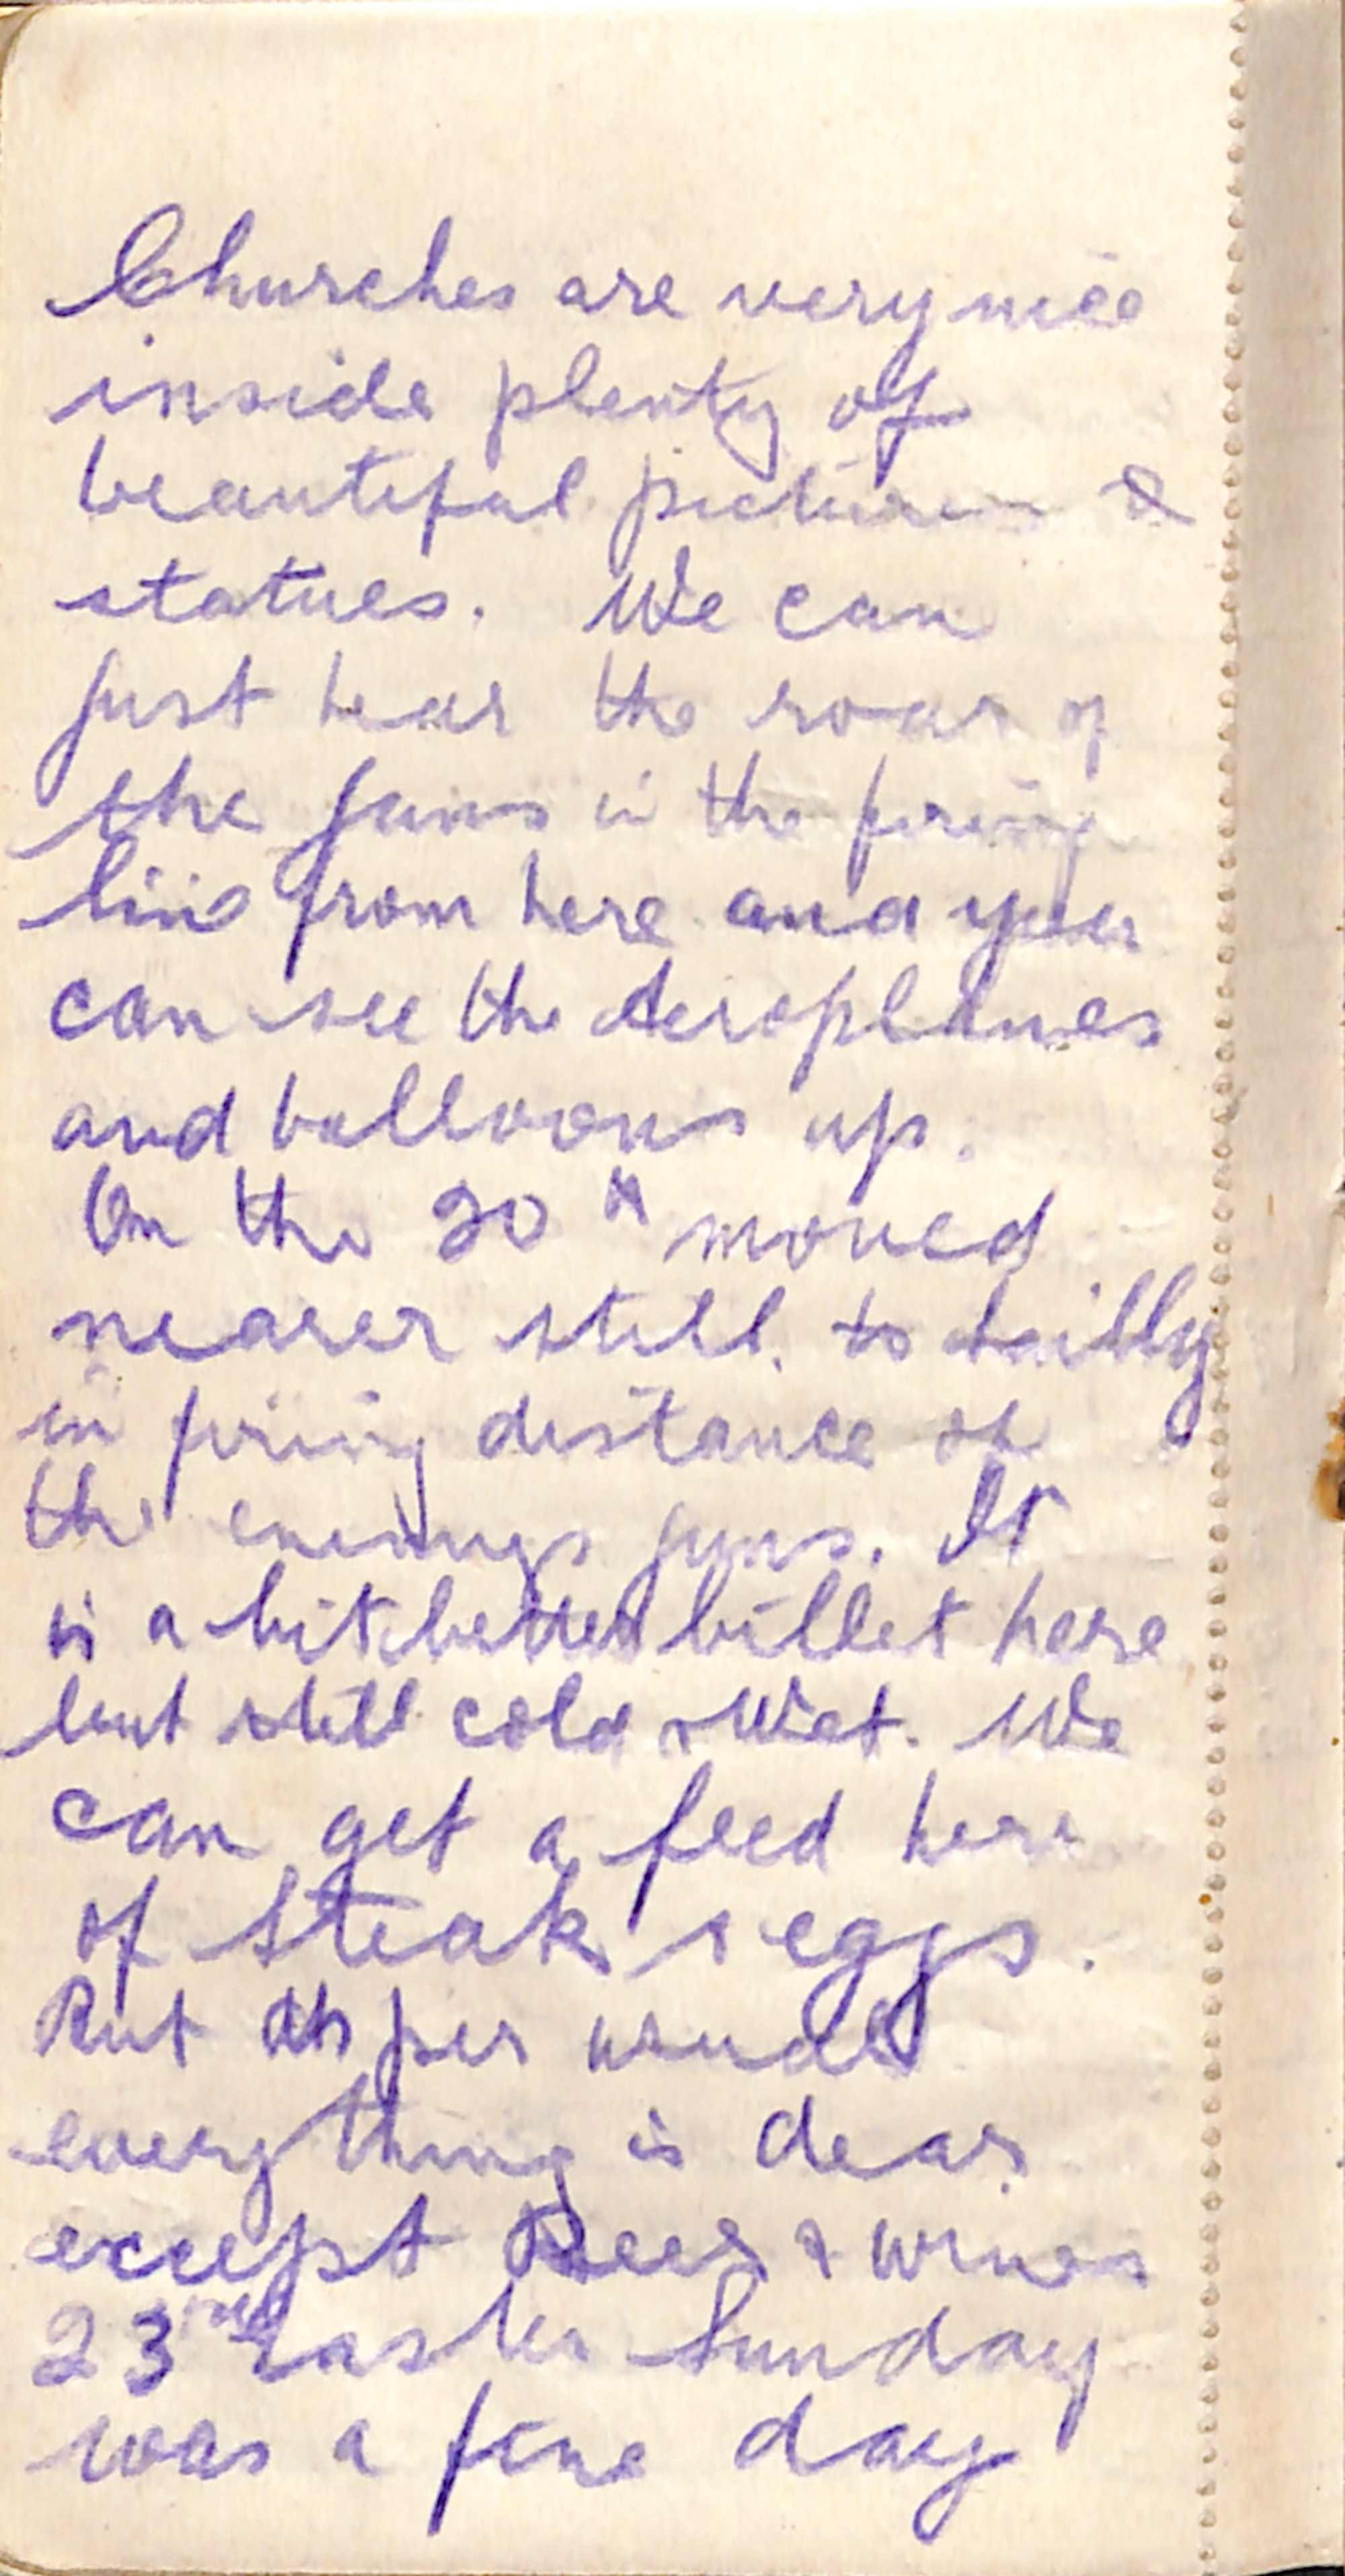 Churches are very nice
inside plenty of
beautiful pictures &
statues. We can
just hear the roar of
the guns in the firing
line from here and you
can see the Aeroplanes
and balloons up.
On the 20th moved
nearer still to Sailly
in firing distance of
the enemys guns. It
is a bit better billet here
but still cold & Wet. We
can get a feed here
of Steak & eggs.
But as per usual
everything is dear
except Beer & wines
23rd Easter Sunday
was a fine day